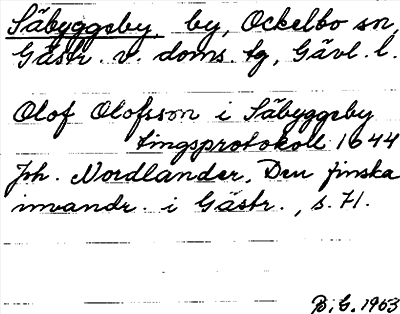 Säbyggeby, by, Ockelbo sn,
Gästr. v. doms. tg, Gävl. l.
Olof Olofsson i Säbyggeby
tingsprotokoll 1644
Joh. Nordlander, Den finska
invandr. i Gästr., s. 71.
B. G. 1963